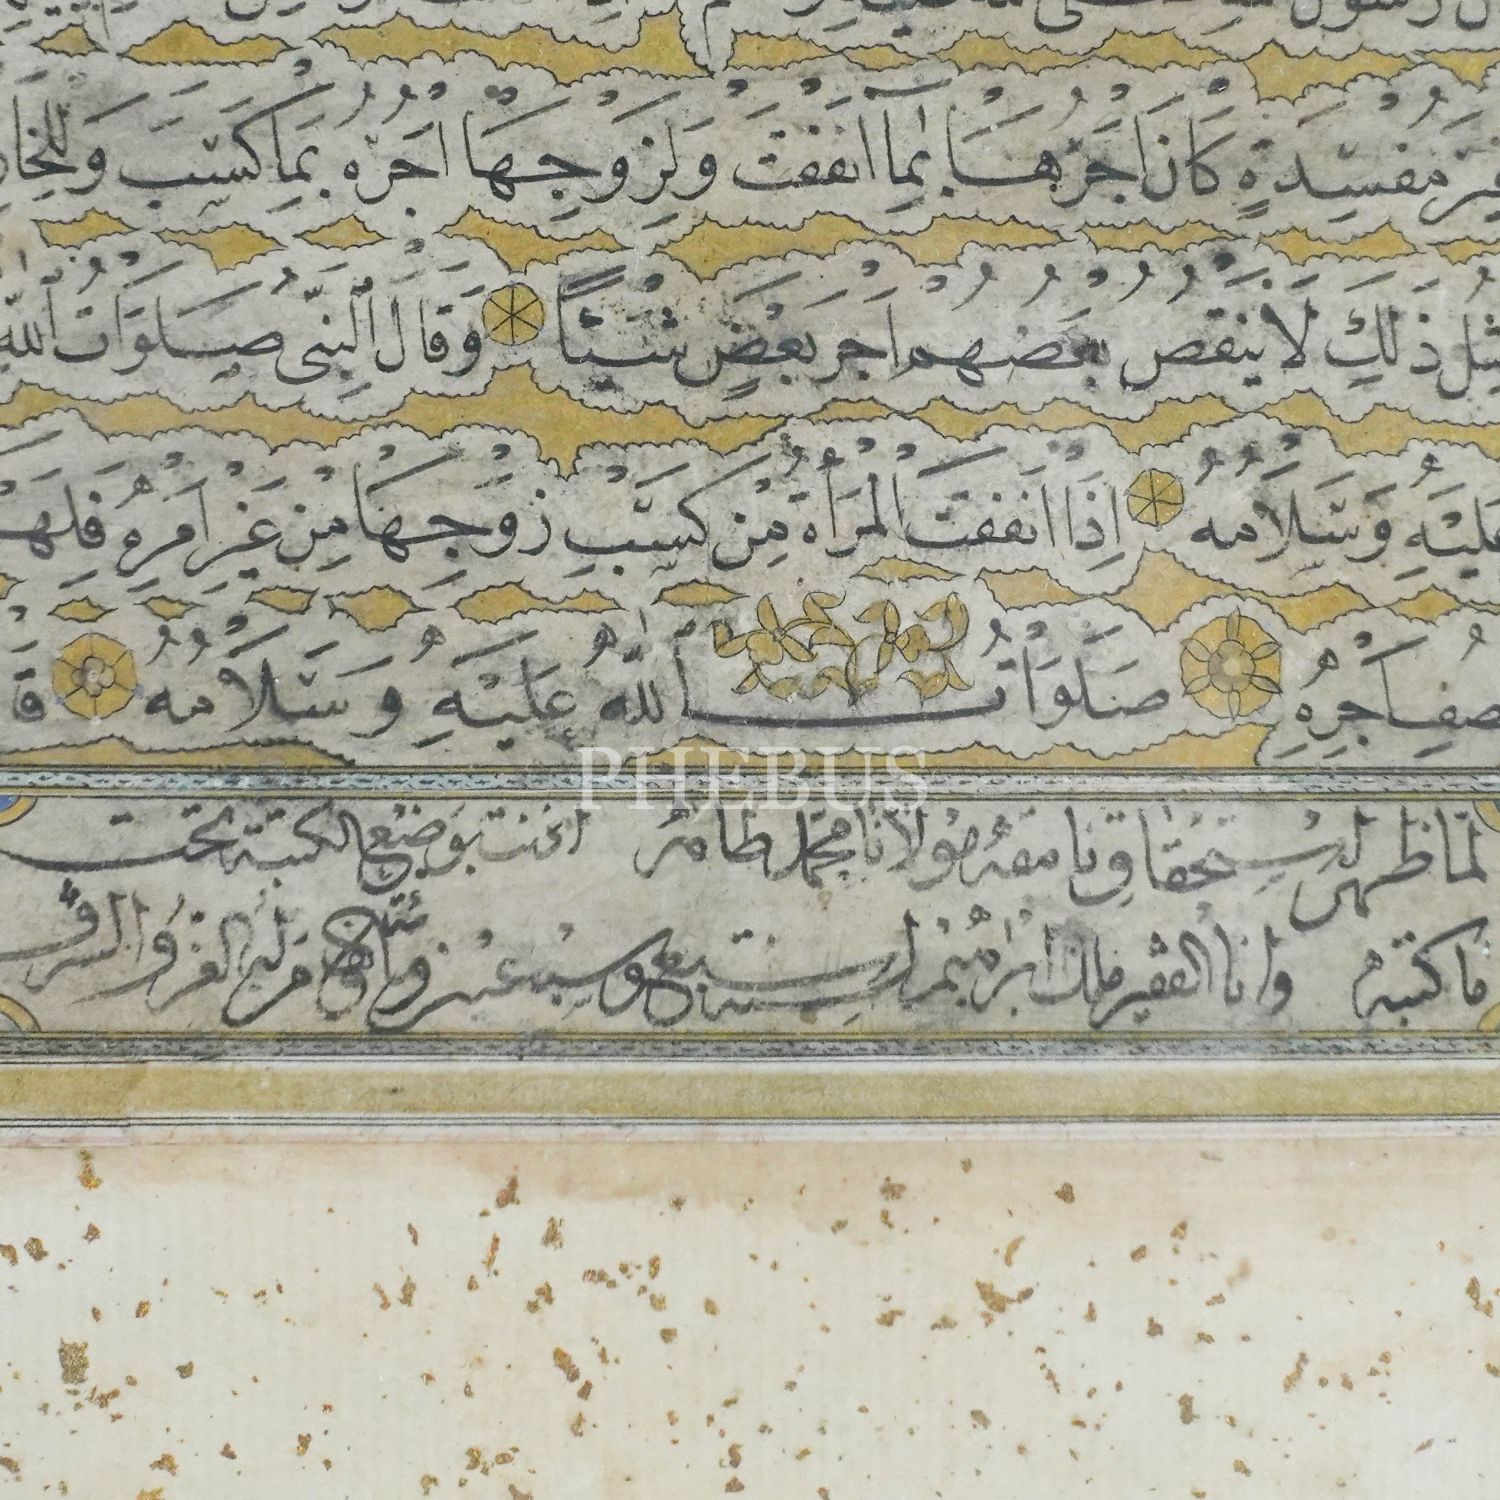 مفسدة كان اجرها بما انفقت ولزوجها اجره بما كسب
ذلك لا ينقص بعضهم اجر بعض شيئا وقال النبي صلوات الله
عليه وسلامه اذا انفقت المرأة من كسب زوجها من غير امره فلها
نصف اجره صلوات الله عليه وسلامه
لما ظهر استحقاق نامقه مولانا محمد طاهر اذنت بوضع الكتبة تحت
ما كتبه وانا الفقير ابراهيم سنة سبع وسبعين من العز والشرف
PHEBUS